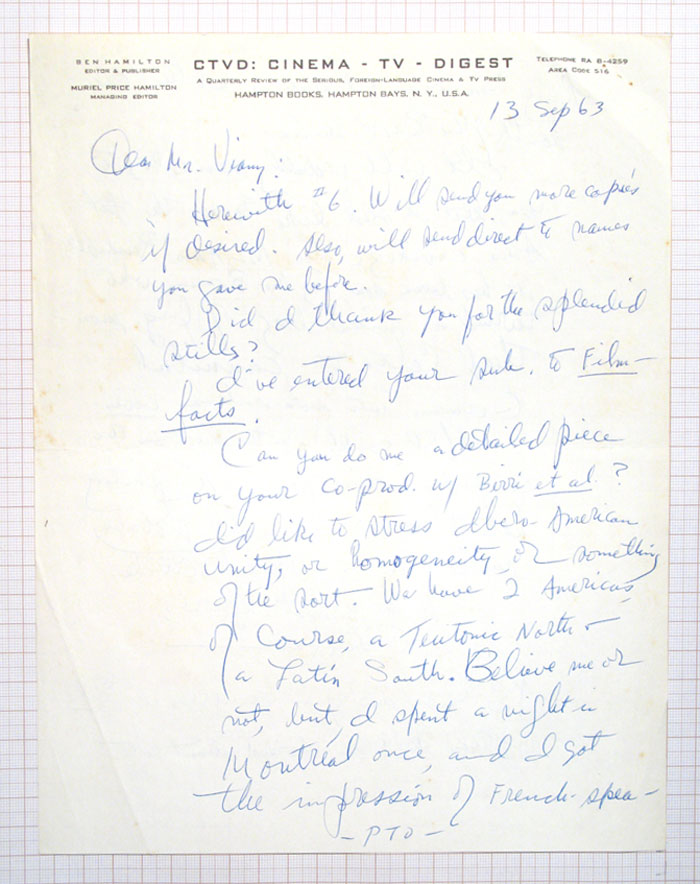 BEN HAMILTON
EDITOR & PUBLISHER
MURIEL PRICE HAMILTON
MANAGING EDITOR
CTVD: CINEMA - TV - DIGEST
A QUARTERLY REVIEW OF THE SERIOUS, FOREIGN-LANGUAGE CINEMA & TV PRESS
HAMPTON BOOKS, HAMPTON BAYS, N. Y., U.S.A.
TELEPHONE RA 8-4259
AREA CODE 516
13 Sep 63
Dear Mr. Viany:
Herewith #6. Will send you more copies
if desired. Also, will send direct to names
you gave me before.
Did I thank you for the splendid
stills?
I've entered your sub. to Film-
facts.
Can you do me a detailed piece
on your co-prod. w/ Birri et al.?
I'd like to stress Ibero-American
unity, or homogeneity, or something
of the sort. We have 2 Americas,
of course, a Teutonic North &
a Latin South. Believe me or
not, but I spent a night in
Montréal once, and I got
the impression of French-spea-
- PTO -